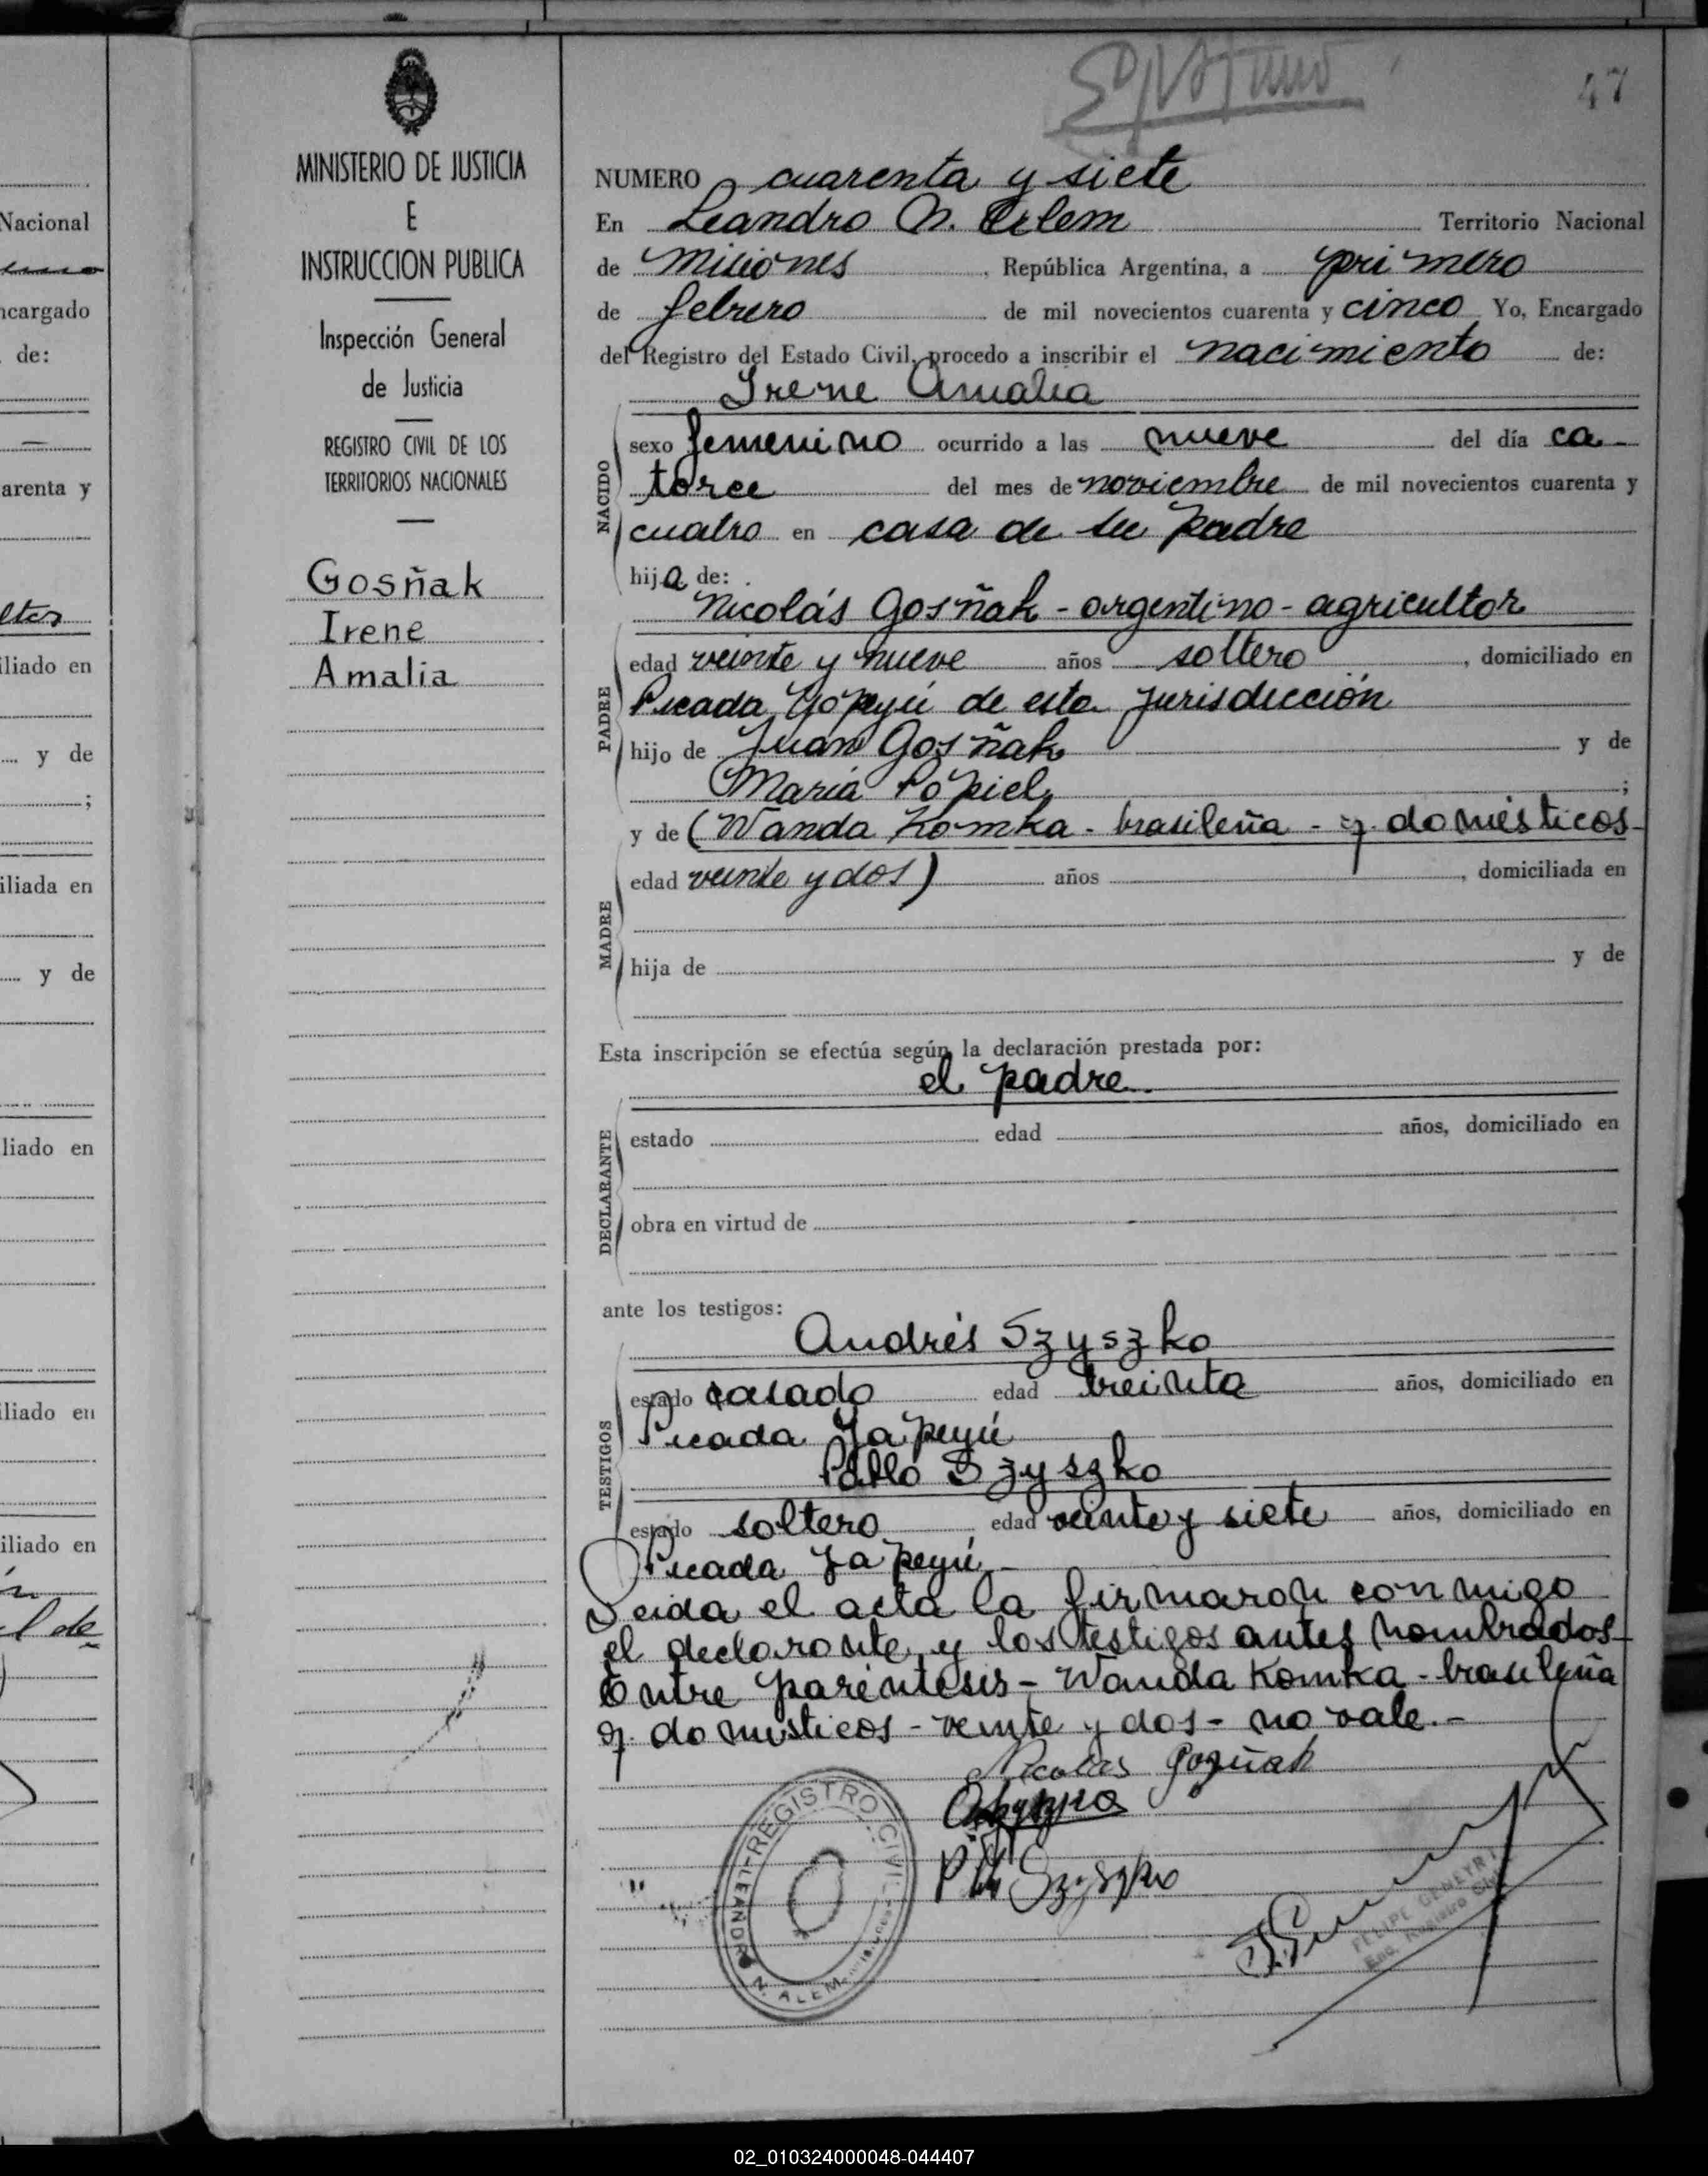 47
MINISTERIO DE JUSTICIA
E
INSTRUCCION PUBLICA
Inspección General
de Justicia
REGISTRO CIVIL DE LOS
TERRITORIOS NACIONALES
Gosñak
Irene
Amalia
NUMERO cuarenta y siete
En Leandro N. Alem Territorio Nacional
de Misiones, República Argentina, a primero
de febrero de mil novecientos cuarenta y cinco Yo, Encargado
del Registro del Estado Civil, procedo a inscribir el nacimiento de:
Irene Amalia
NACIDO
sexo femenino ocurrido a las nueve del día ca-
torce del mes de noviembre de mil novecientos cuarenta y
cuatro en casa de su padre
hija de:
Nicolás Gosñak - argentino - agricultor
PADRE
edad veinte y nueve años soltero, domiciliado en
Picada Yapeyú de esta jurisdicción
hijo de Juan Gosñak y de
María Popiel;
y de (Wanda Komka - brasileña - q. domésticos-
MADRE
edad veinte y dos) años, domiciliada en
hija de y de
Esta inscripción se efectúa según la declaración prestada por:
el padre.
DECLARANTE
estado edad años, domiciliado en
obra en virtud de
ante los testigos:
Andrés Szyszko
TESTIGOS
estado casado edad treinta años, domiciliado en
Picada Yapeyú
Pablo Szyszko
estado soltero edad veinte y siete años, domiciliado en
Picada Yapeyú-
Leida el acta la firmaron conmigo
el declarante y los testigos antes nombrados-
Entre paréntesis - Wanda Komka - brasileña
q. domésticos - veinte y dos - no vale.-
Nicolás Gozñak
Szyszko
REGISTRO CIVIL
LEANDRO N. ALEM
FELIPE
Enc. Registro Civil
Nacional
ncargado
de:
arenta y
iliado en
y de
;
iliada en
y de
liado en
iliado en
iliado en
l de
02_010324000048-044407